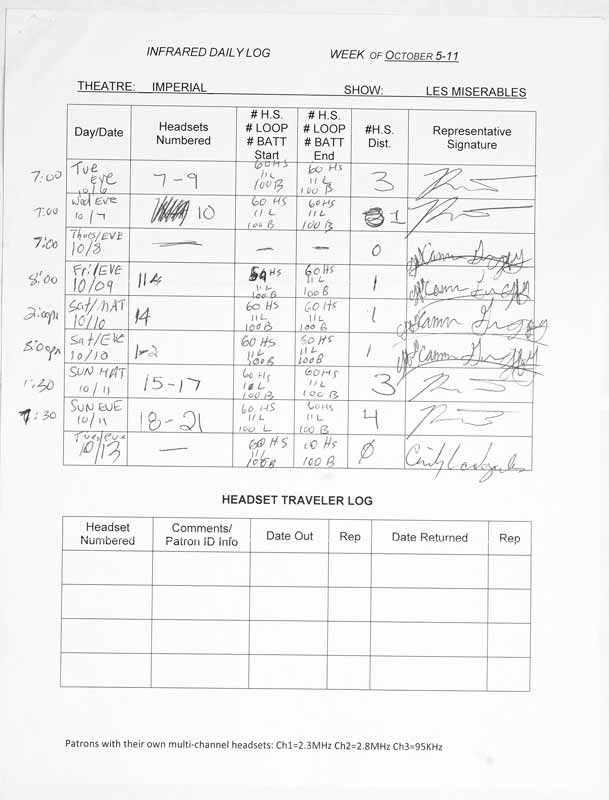 INFRARED DAILY LOG WEEK OF OCTOBER 5-11
THEATRE: IMPERIAL SHOW: LES MISERABLES
Day/Date
Headsets
Numbered
# H.S.
# LOOP
# BATT
Start
# H.S.
# LOOP
# BATT
End
#H.S.
Dist.
Representative
Signature
7:00
Tue
Eve
10/6
7-9
60 HS
11 L
100 B
60 HS
11 L
100 B
3
7:00
Wed/Eve
10/7
10
60 HS
11 L
100 B
60 HS
11 L
100 B
1
7:00
Thurs/EVE
10/8
—
—
—
0
8:00
Fri/EVE
10/09
60 HS
11 L
100 B
1
2:00pm
Sat/MAT
10/10
14
60 HS
11 L
100 B
60 HS
11 L
100 B
1
8:00pm
Sat/EVE
10/10
1-2
60 HS
11 L
100 B
HS
11 L
100 B
1
1:30
SUN MAT
10/11
15-17
60 HS
100 B
60 HS
11 L
100 B
3
7:30
SUN EVE
10/11
18-21
60 HS
11 L
100 L
60 HS
11 L
100 B
4
Tues/eve
10/13
—
60 HS
11 L
100 B
HS
100 B
0
HEADSET TRAVELER LOG
Headset
Numbered
Comments/
Patron ID Info
Date Out
Rep
Date Returned
Rep
Patrons with their own multi-channel headsets: Ch1=2.3MHz Ch2=2.8MHz Ch3=95KHz